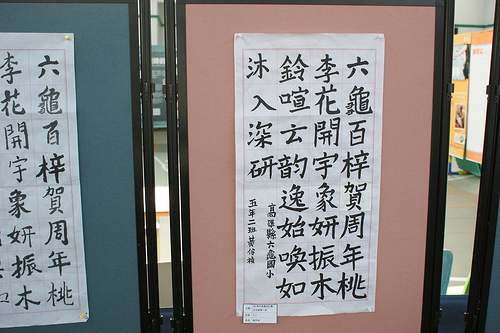 六龜百梓賀周年桃
李花開宇象妍振木
鈴喧云韵逸始喚如
沐入深研
高雄縣六龜國小
五年二班
六龜百梓賀周年桃
李花開宇象妍振木